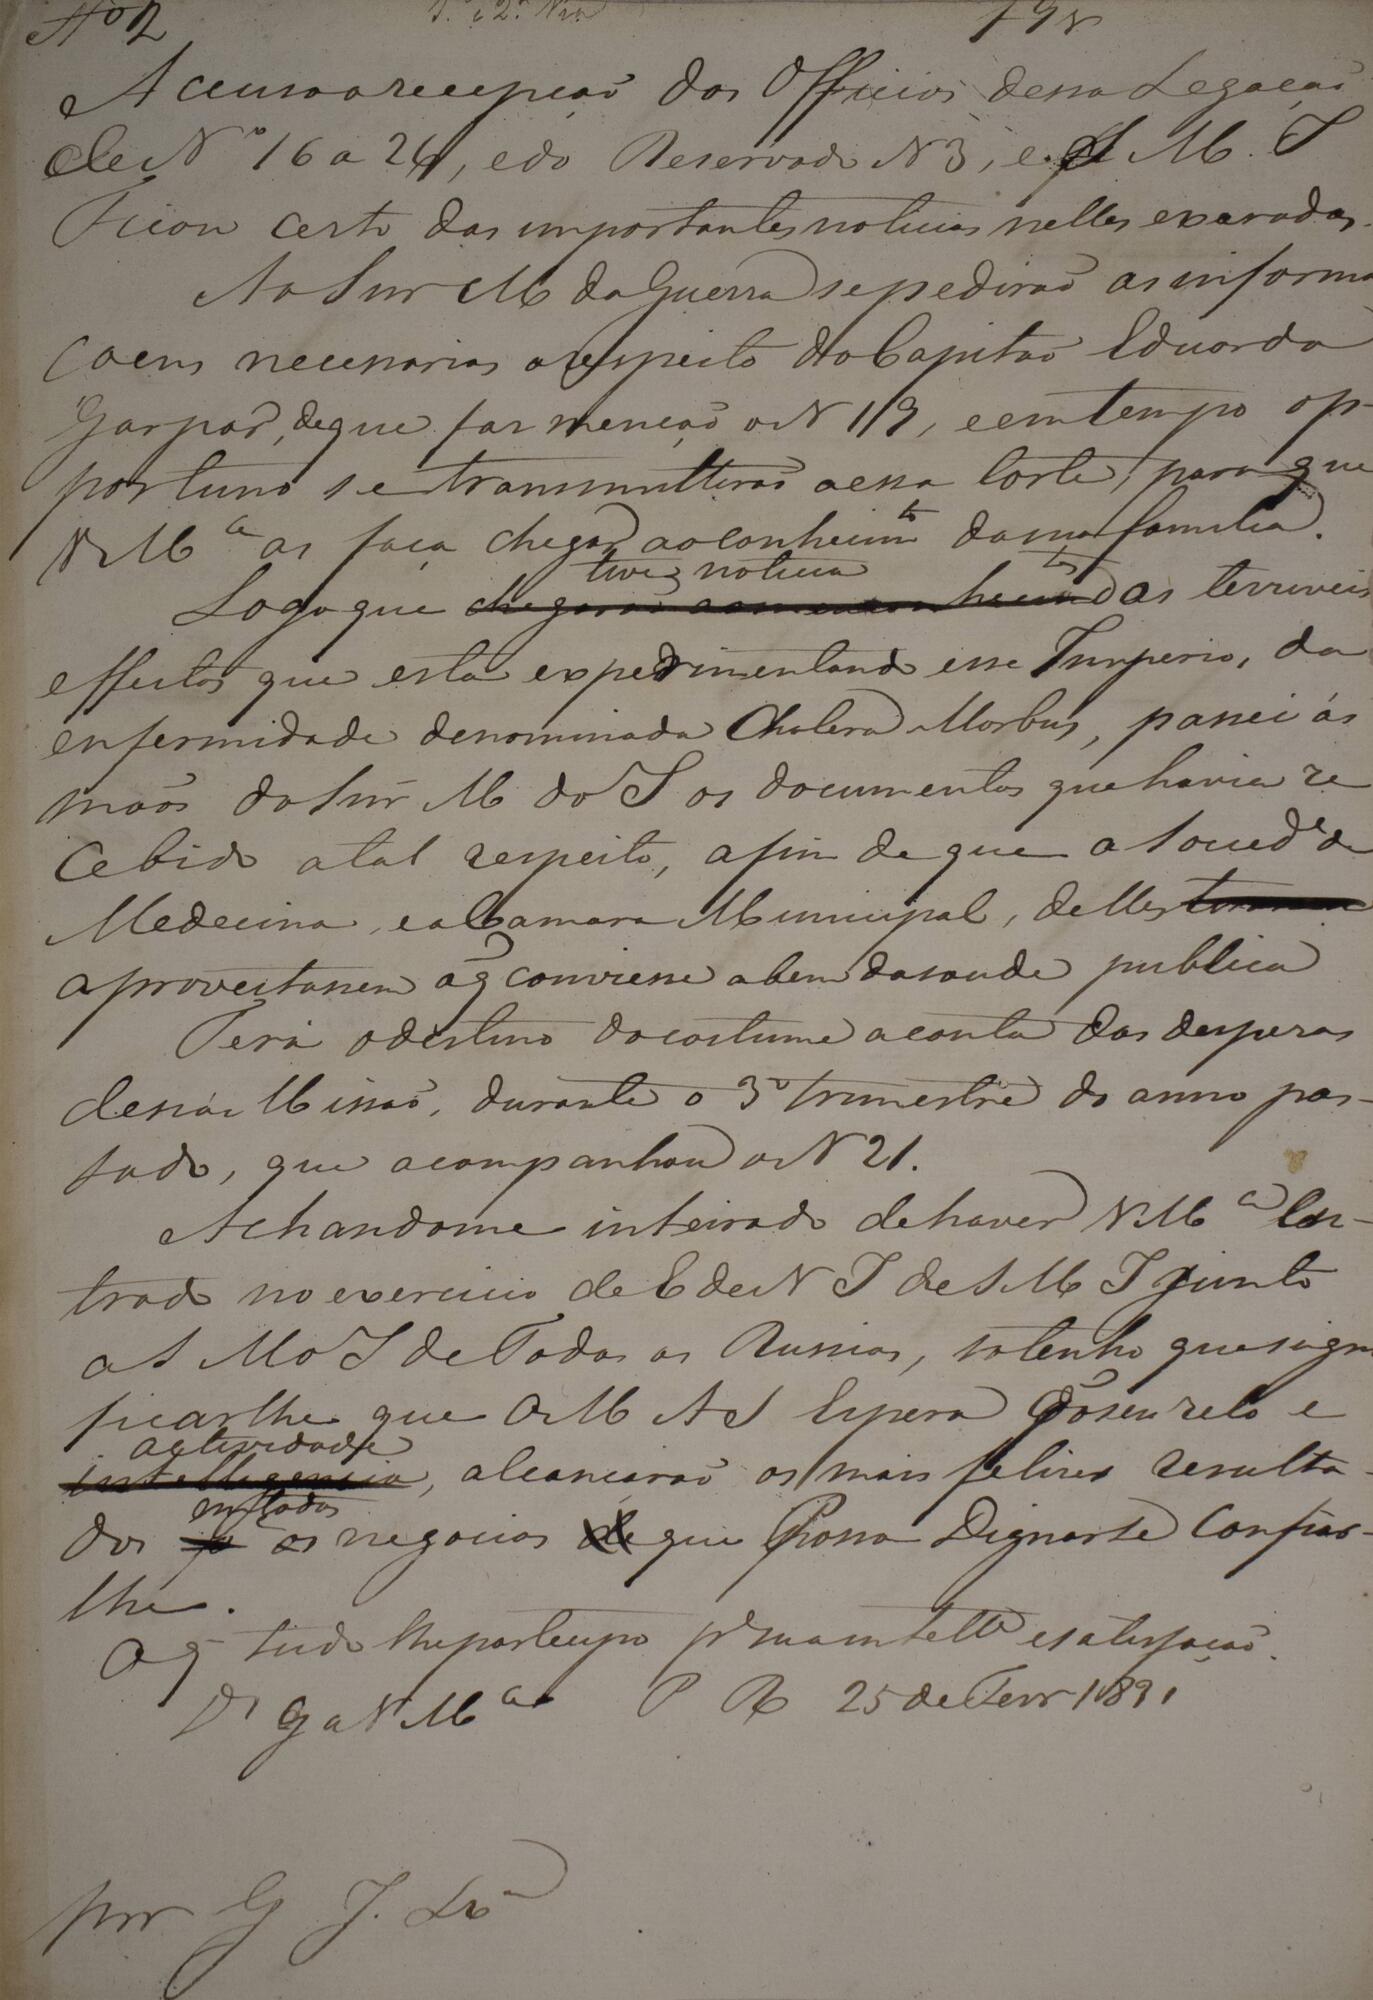 Nº 2 1.ª e 2.ª Via
Accuso a recepção dos Officios dessa Legação
de Nº 16 a 24, e do Reservado N 3, e S M. I
Ficou certo das importantes noticias nelles exaradas.
Ao Snr M da Guerra se pedirão as informa
coens necessarias a respeito do Capitão Eduardo
Gaspar, de que faz menção o N 19, e em tempo op-
portuno se transmittirão a essa Corte, para que
V M.ce as faça chegar ao conhecim.to da sua familia.
tive noticia
Logo que chegarão a meu conhecim.to das terriveis
effeitos que está expedrimentando esse Imperio, da
enfermidade denominada Cholera Morbus, passei ás
mãos do Snr M do I os documentos que havia re
cebido a tal respeito, a fim de que a Socied.e de
Medecina, e a Camara Municipal, delles
aproveitassem o q̃ conviesse a bem da saude publica
Terá o destino do costume a conta das despezas
dessa Missão, durante o 3º trimestre do anno pas-
sado, que acompanhou o N 21.
Achandome inteirado de haver V M.ce En-
trado no exercicio de E de N I de S M I junto
a S M o I de Todas as Russias, só tenho que signi
ficarlhe que O M A S Espera q̃ do seu zelo e
actividade
intelligencia, alcançarão os mais felizes resulta-
em todos
dos os negocios de que Possa Dignarse Confiar-
lhe.
O q̃ tudo lhe participo p.ª sua intell.ª e satisfação.
D.s G a V M.ce P R 25 de Fevr 1831
por G J. Lx.ª